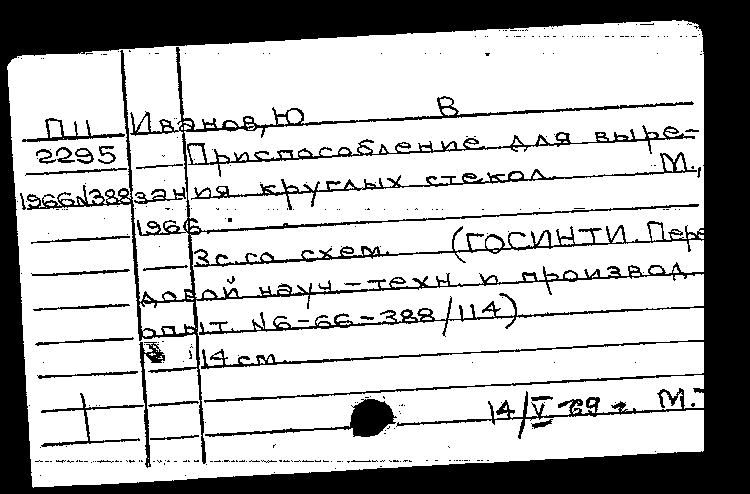 П11 Иванов, Ю В
2295 Приспособление для выре-
1966N388 зания круглых стекол. М.,
1966.
3с. со схем. (ГОСИНТИ. Пере
довой науч-техн. и производ.
опыт. N6-66-388/114)
14 см.
14/V-69 г. М.